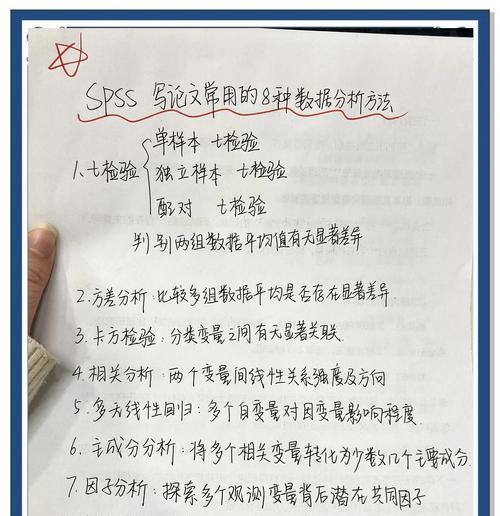 SPSS 写论文常用的8种数据分析方法
单样本 t检验
1. t检验 独立样本 t检验
配对 t检验
判别两组数据平均值有无显著差异
2. 方差分析：比较多组数据平均是否存在显著差异
3. 卡方检验：分类变量之间有无显著关联.
4. 相关分析：两个变量间线性关系强度及方向
5. 多元线性回归：多个自变量对因变量影响程度.
6. 主成分分析：将多个相关变量转化为少数几个主要成分.
7. 因子分析：探索多个观测变量背后潜在共同因子